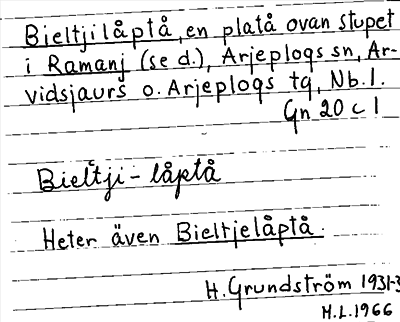 Bieltjilåptå, en platå ovan stupet
i Ramanj (se d.), Arjeplogs sn, Ar-
vidsjaurs o. Arjeplogs tg, Nb. l.
Gn 20 c 1
Bieltji-låptå
Heter även Bieltjelåptå.
H. Grundström 1931-3
H.L.1966